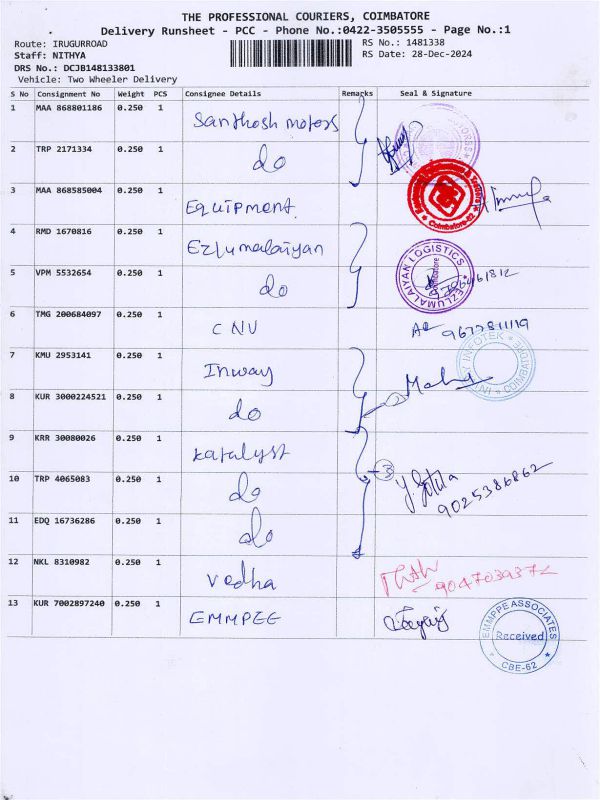 THE PROFESSIONAL COURIERS, COIMBATORE
Delivery Runsheet - PCC - Phone No.:0422-3505555 - Page No.:1
Route: IRUGURROAD
RS No.: 1481338
Staff: NITHYA
RS Date: 28-Dec-2024
DRS No.: DCJB148133801
Vehicle: Two Wheeler Delivery
S No Consignment No Weight PCS Consignee Details Remarks Seal & Signature
1 MAA 868801186 0.250 1 Santhosh motors
2 TRP 2171334 0.250 1 do
3 MAA 868585004 0.250 1 Equipment
Coimbatore-62
4 RMD 1670816 0.250 1 Ezlumalaiyan
EZLUMALAIYAN LOGISTICS
Coimbatore
5 VPM 5532654 0.250 1 do
6 TMG 200684097 0.250 1 CNV
7 KMU 2953141 0.250 1 Inway
INWAY INFOTEK
COIMBATORE
8 KUR 3000224521 0.250 1 do 2
9 KRR 30080026 0.250 1 katalyst
3
10 TRP 4065083 0.250 1 do
9025386862
11 EDQ 16736286 0.250 1 do
12 NKL 8310982 0.250 1 Vedha
13 KUR 7002897240 0.250 1 EMMPEE
EMMPPE ASSOCIATES
Received
CBE-62